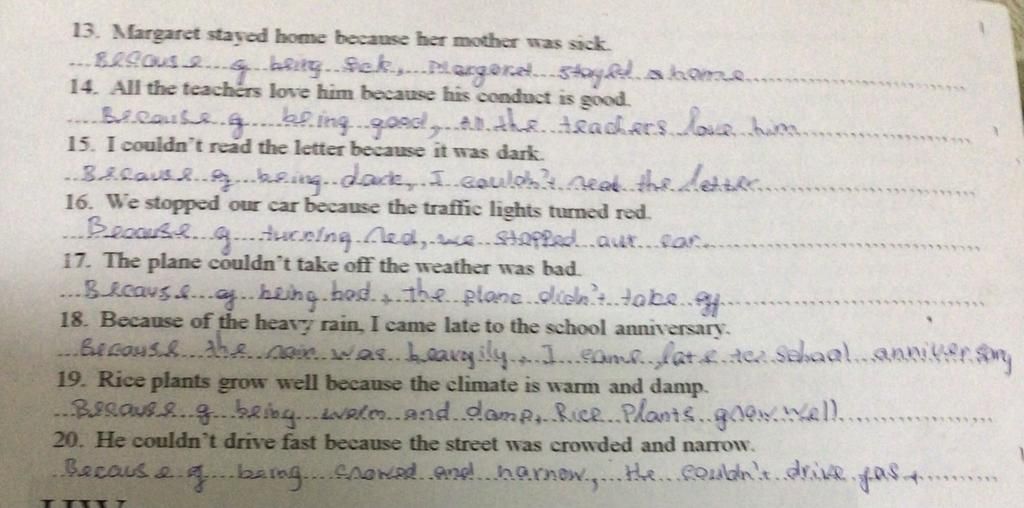 13. Margaret stayed home because her mother was sick.
...Because of being sick, Margaret stayed a home
14. All the teachers love him because his conduct is good.
...Because of being good, all the teachers love him
15. I couldn't read the letter because it was dark.
...Because of being dark, I couldn't read the letter
16. We stopped our car because the traffic lights turned red.
...Because of turning red, we stopped our car
17. The plane couldn't take off the weather was bad.
...Because of being bad, the plane didn't take off
18. Because of the heavy rain, I came late to the school anniversary.
...Because the rain was heavyily, I came late school anniversary
19. Rice plants grow well because the climate is warm and damp.
...Because of being warm and damp, Rice Plants grow well
20. He couldn't drive fast because the street was crowded and narrow.
Because of being crowed and narrow, He couldn't drive fast